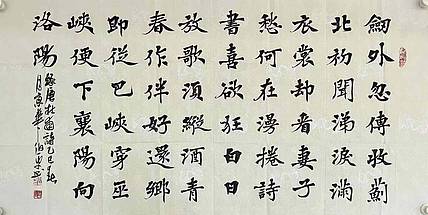 劒外忽傳收薊
北初聞涕淚滿
衣裳却看妻子
愁何在漫捲詩
書喜欲狂白日
放歌須縱酒青
春作伴好還鄉
即從巴峽穿巫
峽便下襄陽向
洛陽
錄唐杜甫詩乙巳
月